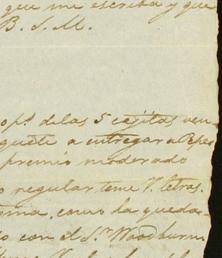 que me escriba y que
B. S. M.
de las 5 cajitas ven
quete a entregar a Pepe
premio moderado
regular tome V. letras
como ha queda
con el Sr. Woodburn